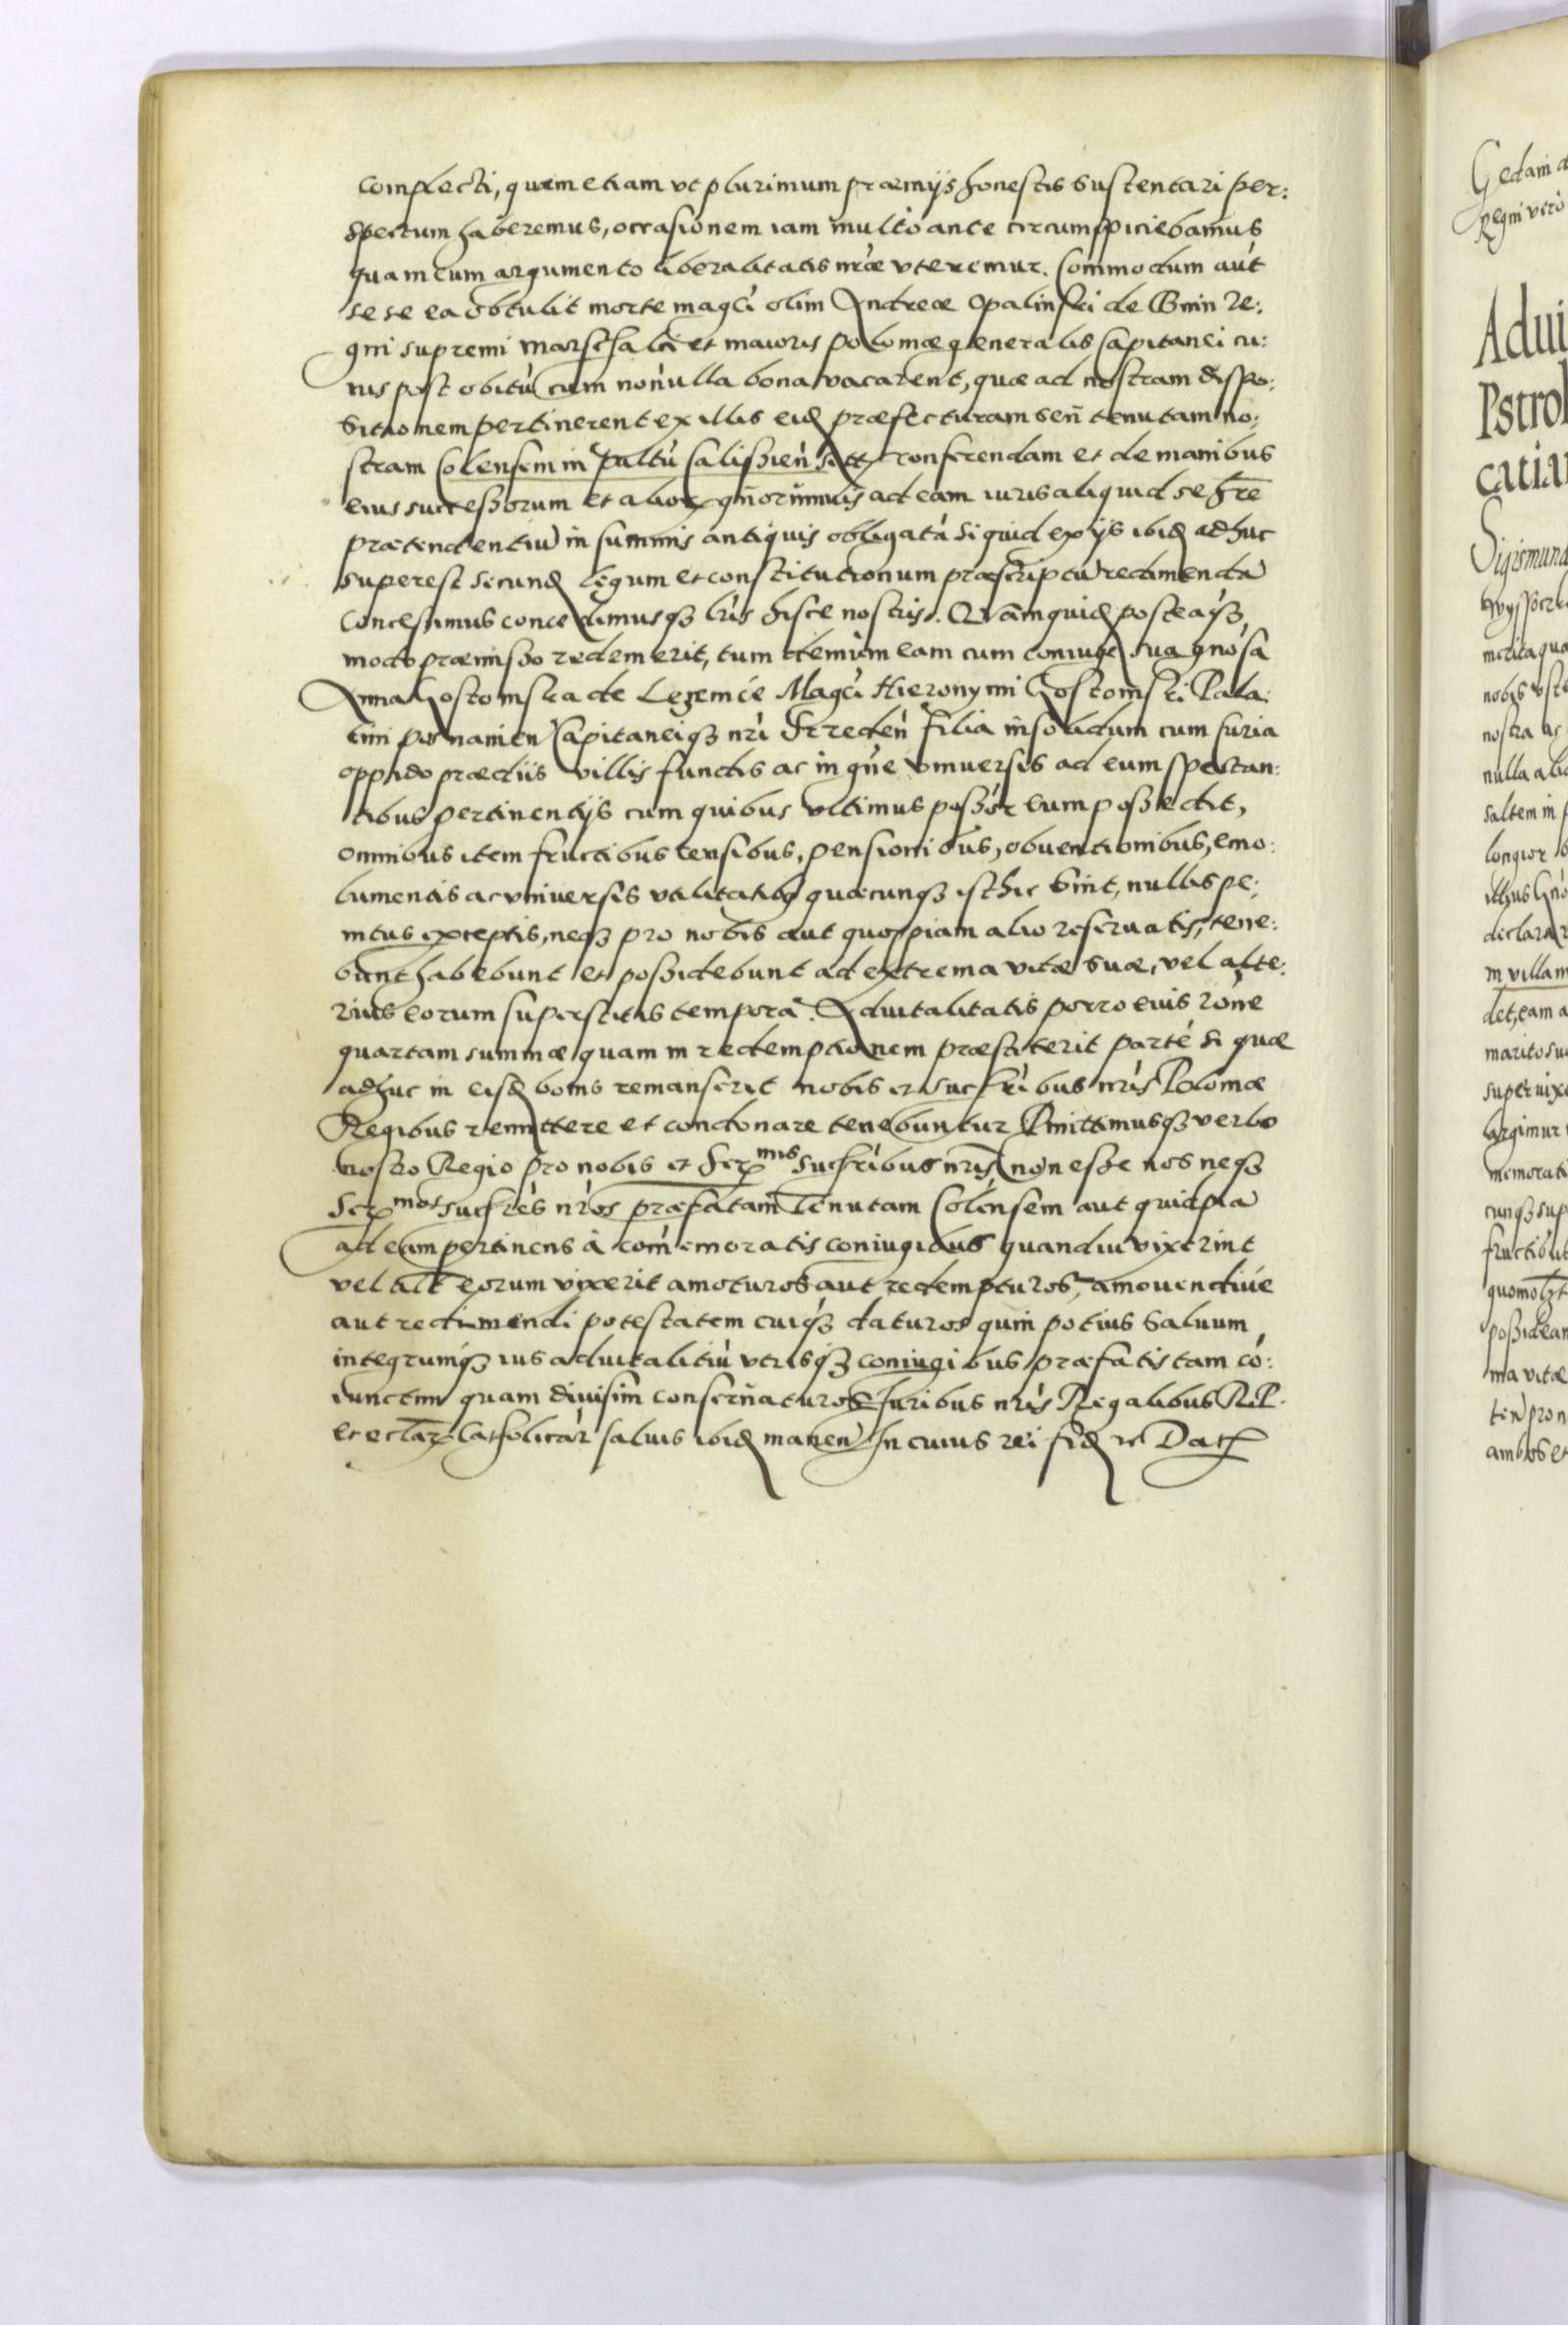 complecti, quem etiam vt plurimum præmijs honestis sustentari per:
spectum haberemus, occasionem iam multo ante circumspiciebamus
quam cum argumento liberalitatis nr̃æ vteremur. Commodum aũt
se se ea obtulit morte magci olim Andreæ Opalinski de Bnin Re:
gni supremi Marschalci et maioris Poloniæ generalis Capitanei cu:
ius post obitũ cum nonnulla bona vacarent, quæ ad nostram dispo:
sitionem pertinerent ex illis eid præfecturam seũ tenutam no:
stram Colensem in Paltũ Calissień conferendam et de manibus
eius successorum et alior quorumuis ad eam iuris aliquid se hre
prætendentiũ in summis antiquis obligatã si quid ex ijs ibid adhuc
superest secund legum et constitutionum præscriptũ redimendã
concessimus concedimusq3 lrĩs hisce nostris. Quãmquid posteaq3
modo præmisso redemerit, tum demum eam cum coniuge sua gnosa
Anna Gostomska de Lezenice Magci Hieronymi Gostomski Pala:
tini Posnanien Capitaneiq3 nrĩ filia insolidum cum Curia
oppido prædiis villis fundis ac in gñe vniuersis ad eum spectan:
tibus pertinentijs cum quibus vltimus possór eum possedit,
omnibus item fructibus censibus, pensionibus, obuentionibus, emo:
lumentis ac vniuersis vtilitatib9 quæcunq3 isthic sint, nullis pe:
nitus exceptis, neq3 pro nobis aut quopiam alio reseruatis, tene:
bunt habebunt et possidebunt ad extrema vitæ suæ, vel alte:
rius eorum superstitis tempora. Aduitalitatis porro euis rõne
quartam summæ quam in redemptionem præstiterit partẽ si quæ
adhuc in eisd bonis remanserit nobis et sucribus nrĩs Poloniæ
Regibus remittere et condonare tenebuntur Pmittimusq3 verbo
nostro Regio pro nobis et Ser^mis sucribus nrĩs, non esse nos neq3
Ser^mos sucres nrõs præfatam Tenutam Colensem aut quidpiã
ad eam pertinens à com̃emoratis coniugibus quandiu vixerint
vel alt eorum vixerit amoturos aut redempturos, amouendiue
aut redimendi potestatem cuiq3 daturos quin potius saluum
integrumq3 ius aduitalitiũ vtrisq3 coniugibus præfatis tam cõ:
iunctim quam diuisim conseruaturos Iuribus nrĩs Regalibus R.P.
et ecclar Catholicar saluis ibid manen In cuius rei fid rc Dat